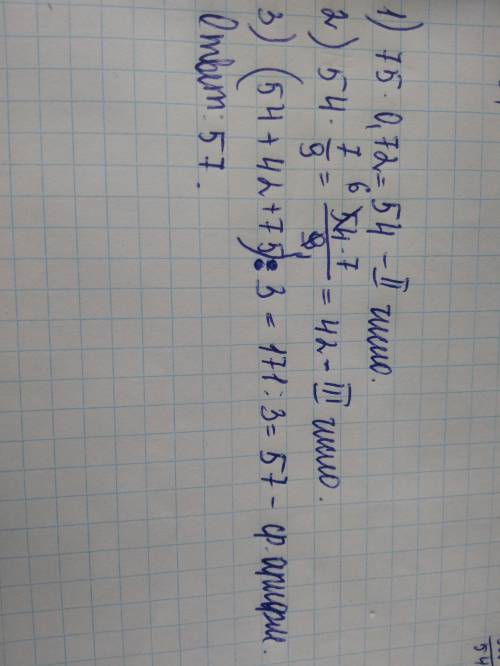 1) 75 · 0,72 = 54 – II число.
2) 54 · 7/9 = 54 · 7/9 = 42 – III число.
3) (54 + 42 + 75) : 3 = 171 : 3 = 57 – ср. арифм.
Ответ: 57.
54